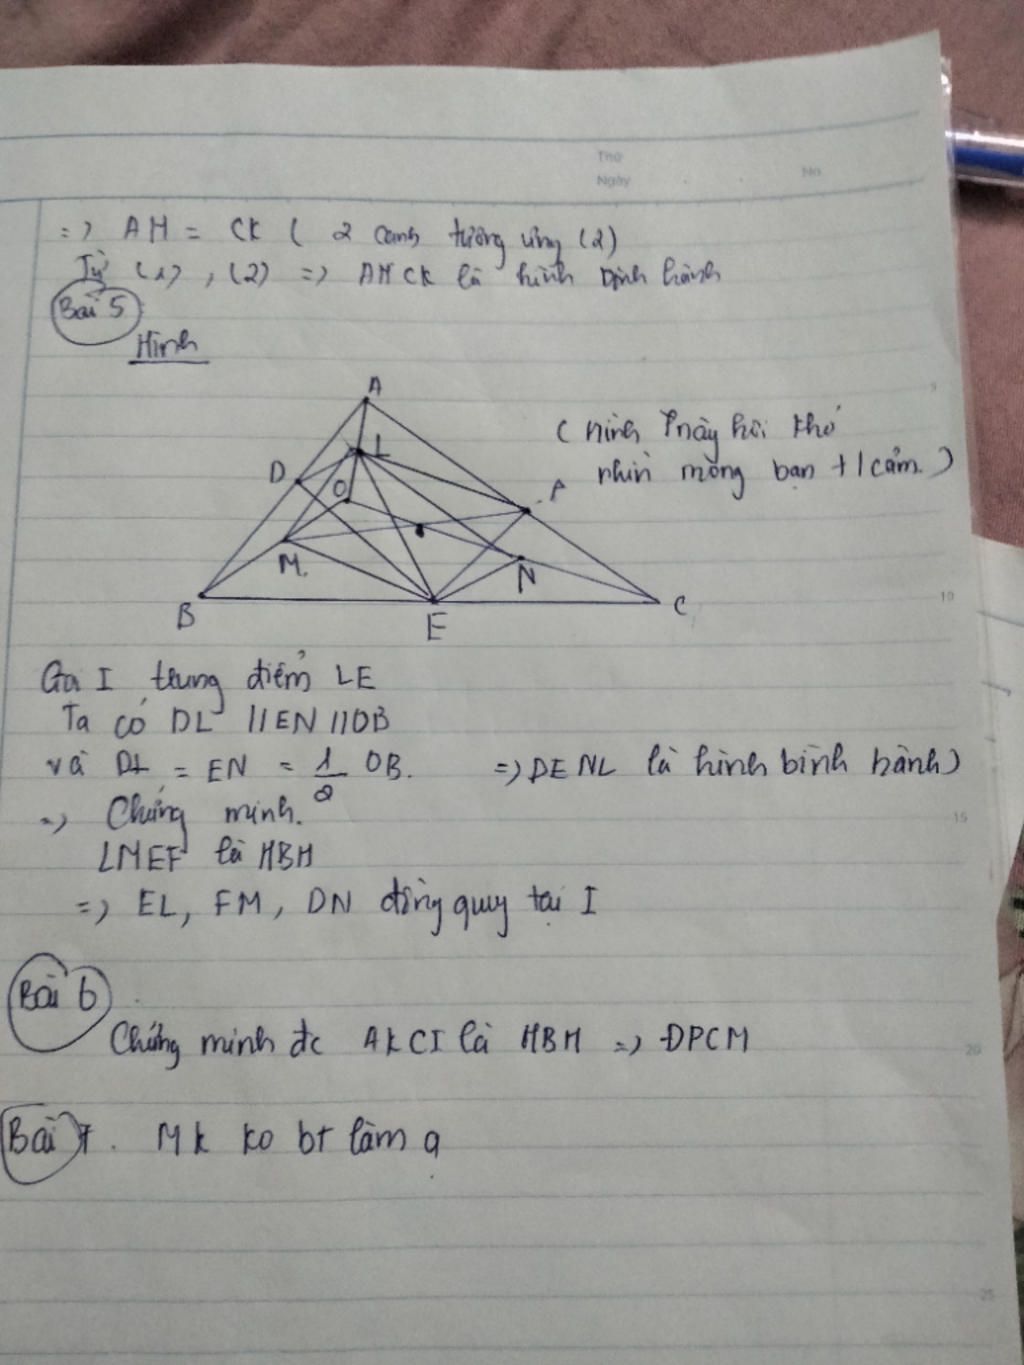 Thứ
Ngày
No.
=> AH = CK ( 2 cạnh tương ứng (2)
Từ (1), (2) => AHCK là hình bình hành
Bài 5
Hình
A
( Hình này hơi khó
nhìn mong bạn + / cảm.)
D
L
O
F
M
N
B
E
C
Gọi I trung điểm LE
Ta có DL // EN // OB
và DL = EN = 1/2 OB. => DENL là hình bình hành)
=> Chứng minh.
LMEF là HBH
=> EL, FM, DN đồng quy tại I
Bài 6
Chứng minh đc AKCI là HBH => ĐPCM
Bài 7. Mk ko bt làm ạ